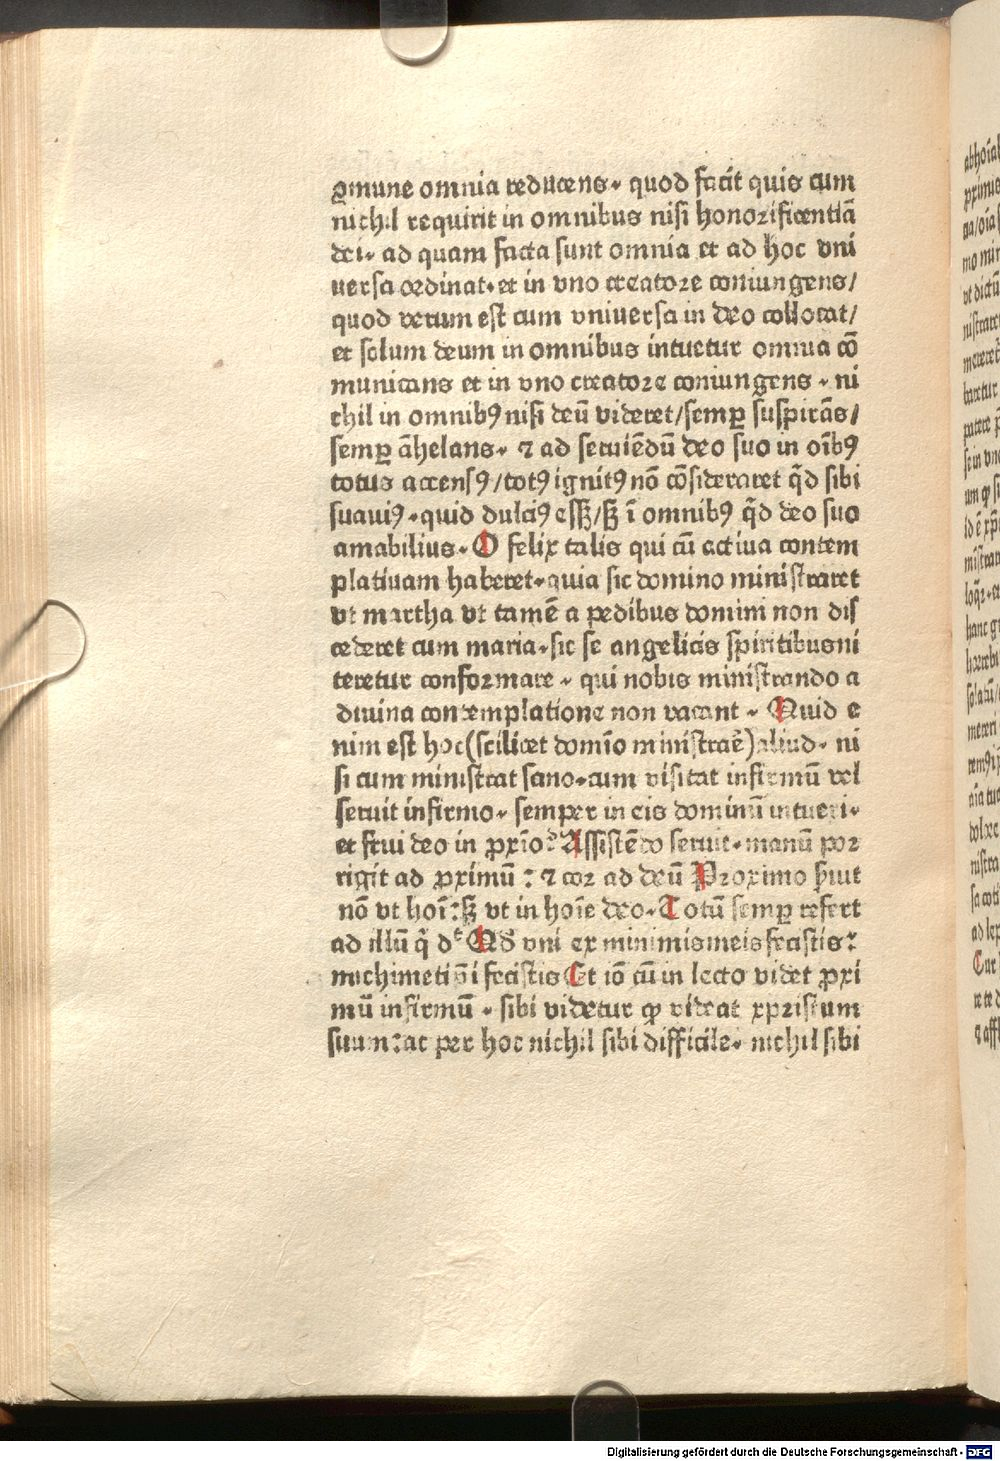 ꝯmune omnia reducens· quod facit quis cum
nichil requirit in omnibus nisi honorificentiā
dei· ad quam facta sunt omnia et ad hoc vni
uersa ordinat·et in vno creatore coniungens/
quod verum est cum vniuersa in deo collocat/
et solum deum in omnibus intuetur omnia cō
municans et in vno creatore coniungens · ni
chil in omnibꝰ nisi deū videret/semꝑ suspirās/
semꝑ āhelans· ⁊ ad seruiēdū deo suo in oībꝰ
totus accensꝰ/totꝰ ignitꝰ nō cōsideraret q̄d sibi
suauiꝰ·quid dulciꝰ essꝫ/sꝫ ī omnibꝰ q̄d deo suo
amabilius· O felix talis qui cū actiua contem
platiuam haberet·quia sic domino ministraret
vt martha vt tamē a pedibus domini non dis
cederet cum maria·sic se angelicis spiritibusni
teretur conformare · qui nobis ministrando a
diuina contemplatione non vacant · Quid e
nim est hoc(scilicet domīo ministraē)aliud· ni
si cum ministrat sano·cum visitat infirmū vel
seruit infirmo· semper in eis dominū intueri·
et frui deo in ꝓxīo Assistēdo seruit·manū por
rigit ad ꝓximū : ⁊ cor ad deū Proximo s̄uit
nō vt hoī:sꝫ vt in hoīe deo·Totū semꝑ refert
ad illū q̄ dt Qd vni ex minimismeisfecistis:
michimetip̄i fecistis Et iō cū in lecto videt ꝓxi
mū infirmū · sibi videtur ꝙ videat xpristum
suum:ac per hoc nichil sibi difficile· nichil sibi
Digitalisierung gefördert durch die Deutsche Forschungsgemeinschaft - DFG